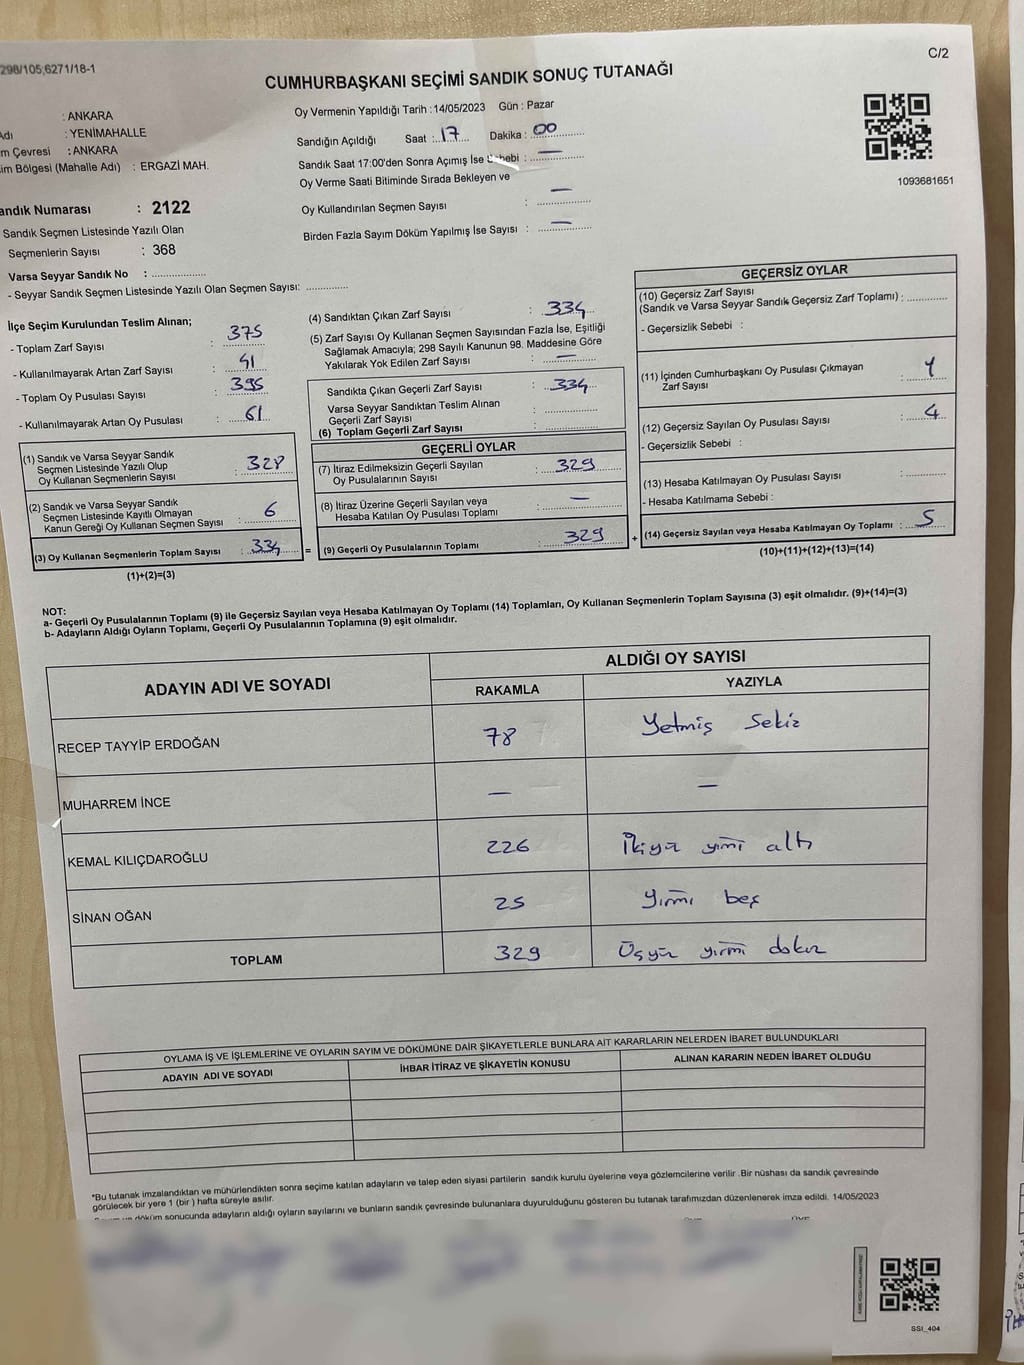 298/105;6271/18-1
C/2
CUMHURBAŞKANI SEÇİMİ SANDIK SONUÇ TUTANAĞI
: ANKARA
Adı : YENİMAHALLE
m Çevresi : ANKARA
im Bölgesi (Mahalle Adı) : ERGAZİ MAH.
andık Numarası : 2122
Sandık Seçmen Listesinde Yazılı Olan
Seçmenlerin Sayısı : 368
Varsa Seyyar Sandık No :
- Seyyar Sandık Seçmen Listesinde Yazılı Olan Seçmen Sayısı:
Oy Vermenin Yapıldığı Tarih :14/05/2023 Gün : Pazar
Sandığın Açıldığı Saat : 17 Dakika : 00
Sandık Saat 17:00'den Sonra Açımış İse Sebebi : —
Oy Verme Saati Bitiminde Sırada Bekleyen ve
Oy Kullandırılan Seçmen Sayısı : —
Birden Fazla Sayım Döküm Yapılmış İse Sayısı : —
1093681651
İlçe Seçim Kurulundan Teslim Alınan;
- Toplam Zarf Sayısı : 375
- Kullanılmayarak Artan Zarf Sayısı : 41
- Toplam Oy Pusulası Sayısı : 395
- Kullanılmayarak Artan Oy Pusulası : 61
(1) Sandık ve Varsa Seyyar Sandık
Seçmen Listesinde Yazılı Olup
Oy Kullanan Seçmenlerin Sayısı : 328
(2) Sandık ve Varsa Seyyar Sandık
Seçmen Listesinde Kayıtlı Olmayan
Kanun Gereği Oy Kullanan Seçmen Sayısı : 6
(3) Oy Kullanan Seçmenlerin Toplam Sayısı : 334
(1)+(2)=(3)
=
(4) Sandıktan Çıkan Zarf Sayısı : 334
(5) Zarf Sayısı Oy Kullanan Seçmen Sayısından Fazla İse, Eşitliği
Sağlamak Amacıyla; 298 Sayılı Kanunun 98. Maddesine Göre
Yakılarak Yok Edilen Zarf Sayısı : —
Sandıkta Çıkan Geçerli Zarf Sayısı : 334
Varsa Seyyar Sandıktan Teslim Alınan
Geçerli Zarf Sayısı :
(6) Toplam Geçerli Zarf Sayısı :
GEÇERLİ OYLAR
(7) İtiraz Edilmeksizin Geçerli Sayılan
Oy Pusulalarının Sayısı : 329
(8) İtiraz Üzerine Geçerli Sayılan veya
Hesaba Katılan Oy Pusulası Toplamı : —
(9) Geçerli Oy Pusulalarının Toplamı : 329
+
GEÇERSİZ OYLAR
(10) Geçersiz Zarf Sayısı
(Sandık ve Varsa Seyyar Sandık Geçersiz Zarf Toplamı) :
- Geçersizlik Sebebi :
(11) İçinden Cumhurbaşkanı Oy Pusulası Çıkmayan
Zarf Sayısı : 1
(12) Geçersiz Sayılan Oy Pusulası Sayısı : 4
- Geçersizlik Sebebi :
(13) Hesaba Katılmayan Oy Pusulası Sayısı :
- Hesaba Katılmama Sebebi :
(14) Geçersiz Sayılan veya Hesaba Katılmayan Oy Toplamı : 5
(10)+(11)+(12)+(13)=(14)
NOT:
a- Geçerli Oy Pusulalarının Toplamı (9) ile Geçersiz Sayılan veya Hesaba Katılmayan Oy Toplamı (14) Toplamları, Oy Kullanan Seçmenlerin Toplam Sayısına (3) eşit olmalıdır. (9)+(14)=(3)
b- Adayların Aldığı Oyların Toplamı, Geçerli Oy Pusulalarının Toplamına (9) eşit olmalıdır.
ADAYIN ADI VE SOYADI ALDIĞI OY SAYISI
RAKAMLA YAZIYLA
RECEP TAYYİP ERDOĞAN 78 Yetmiş Sekiz
MUHARREM İNCE — —
KEMAL KILIÇDAROĞLU 226 İkiyüz yirmi altı
SİNAN OĞAN 25 Yirmi beş
TOPLAM 329 Üçyüz yirmi dokuz
OYLAMA İŞ VE İŞLEMLERİNE VE OYLARIN SAYIM VE DÖKÜMÜNE DAİR ŞİKAYETLERLE BUNLARA AİT KARARLARIN NELERDEN İBARET BULUNDUKLARI
ADAYIN ADI VE SOYADI İHBAR İTİRAZ VE ŞİKAYETİN KONUSU ALINAN KARARIN NEDEN İBARET OLDUĞU
*Bu tutanak imzalandıktan ve mühürlendikten sonra seçime katılan adayların ve talep eden siyasi partilerin sandık kurulu üyelerine veya gözlemcilerine verilir .Bir nüshası da sandık çevresinde
görülecek bir yere 1 (bir ) hafta süreyle asılır.
döküm sonucunda adayların aldığı oyların sayılarını ve bunların sandık çevresinde bulunanlara duyurulduğunu gösteren bu tutanak tarafımızdan düzenlenerek imza edildi. 14/05/2023
SSI_404